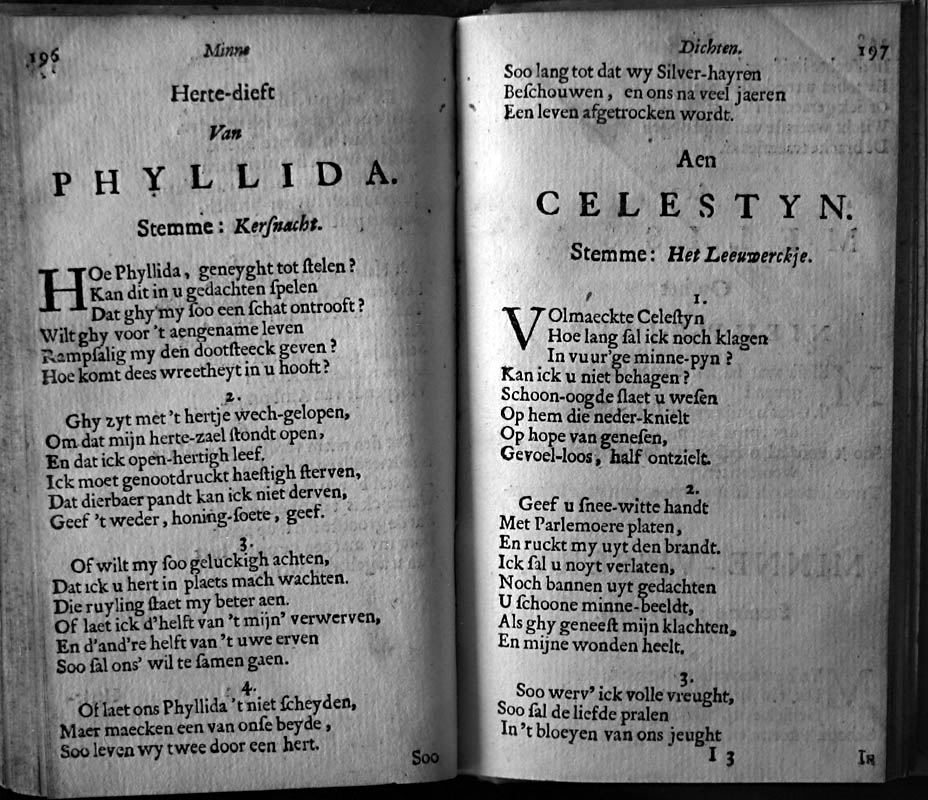 196
Minne
Herte-dieft
Van
PHYLLIDA.
Stemme: Kerſnacht.
HOe Phyllida, geneyght tot ſtelen?
Kan dit in u gedachten ſpelen
Dat ghy my ſoo een ſchat ontrooft?
Wilt ghy voor 't aengename leven
Rampſalig my den dootſteeck geven?
Hoe komt dees wreetheyt in u hooft?
2.
Ghy zyt met 't hertje wech-gelopen,
Om dat mijn herte-zael ſtondt open,
En dat ick open-hertigh leef.
Ick moet genootdruckt haeſtigh ſterven,
Dat dierbaer pandt kan ick niet derven,
Geef 't weder, honing-ſoete, geef.
3.
Of wilt my ſoo geluckigh achten,
Dat ick u hert in plaets mach wachten.
Die ruyling ſtaet my beter aen.
Of laet ick d'helft van 't mijn' verwerven,
En d'and're helft van 't uwe erven
Soo ſal ons' wil te ſamen gaen.
4.
Of laet ons Phyllida 't niet ſcheyden,
Maer maecken een van onſe beyde,
Soo leven wy twee door een hert.
Soo
Dichten.
197
Soo lang tot dat wy Silver-hayren
Beſchouwen, en ons na veel jaeren
Een leven afgetrocken wordt.
Aen
CELESTYN.
Stemme: Het Leeuwerckje.
1.
VOlmaeckte Celeſtyn
Hoe lang ſal ick noch klagen
In vuur'ge minne-pyn?
Kan ick u niet behagen?
Schoon-oogde ſlaet u weſen
Op hem die neder-knielt
Op hope van geneſen,
Gevoel-loos, half ontzielt.
2.
Geef u ſnee-witte handt
Met Parlemoere platen,
En ruckt my uyt den brandt.
Ick ſal u noyt verlaten,
Noch bannen uyt gedachten
U ſchoone minne-beeldt,
Als ghy geneeſt mijn klachten,
En mijne wonden heelt.
3.
Soo werv' ick volle vreught,
Soo ſal de liefde pralen
In 't bloeyen van ons jeught
I 3
In